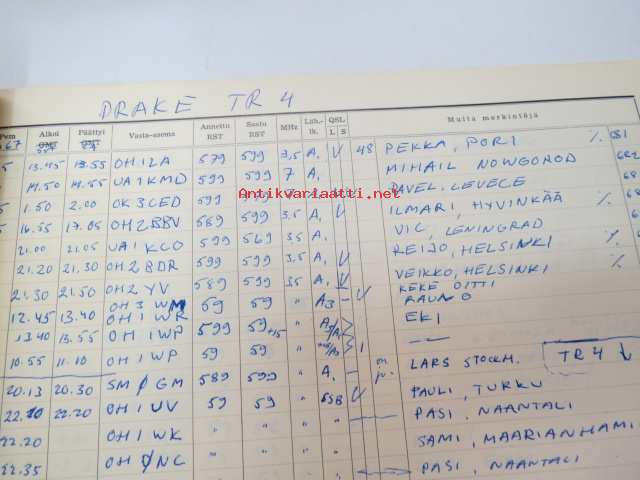 DRAKE TR 4
Pvm Alkoi Päättyi Vasta-asema Annettu RST Saatu RST MHz Läh.-lk. QSL L S Muita merkintöjä
67
13.45 13.55 OH1ZA 579 599 3,5 A, V 48 PEKKA, PORI %. QSL
14.50 14.55 UA1KMD 599 599 7 A, MIHAIL NOWGOROD
1.50 2.00 OK3CED 599 599 A, PAVEL. LEVECE
16.55 17.05 OH2BBV 589 599 3,5 A, V ILMARI, HYVINKÄÄ %.
21.00 21.05 UA1KCO 599 569 3,5 A, VIC, LENINGRAD
21.20 21.30 OH2BDR 599 599 3,5 A, V REIJO, HELSINKI
21.30 21.50 OH2YV 589 599 3,5 A, V VEIKKO, HELSINKI %
KEKE OITTI
12.45 13.40 OH3WM 59 59 " A3 - V RAUNO
OH1WR
13.40 13.55 OH1WP 599 59 +15 " EKI
10.55 11.10 OH1WP 59 59 " 1 —〃—
20.13 20.30 SMØGM 589 599 " A, - LARS STOCKH. TR4 ↓
22.10 22.20 OH1UV 59 59 " SSB V PAULI, TURKU
22.20 OH1WK " " PASI, NAANTALI
22.35 OHØNC " " SAMI, MAARIANHAMI
PASI, NAANTALI
Antikvariaatti.net